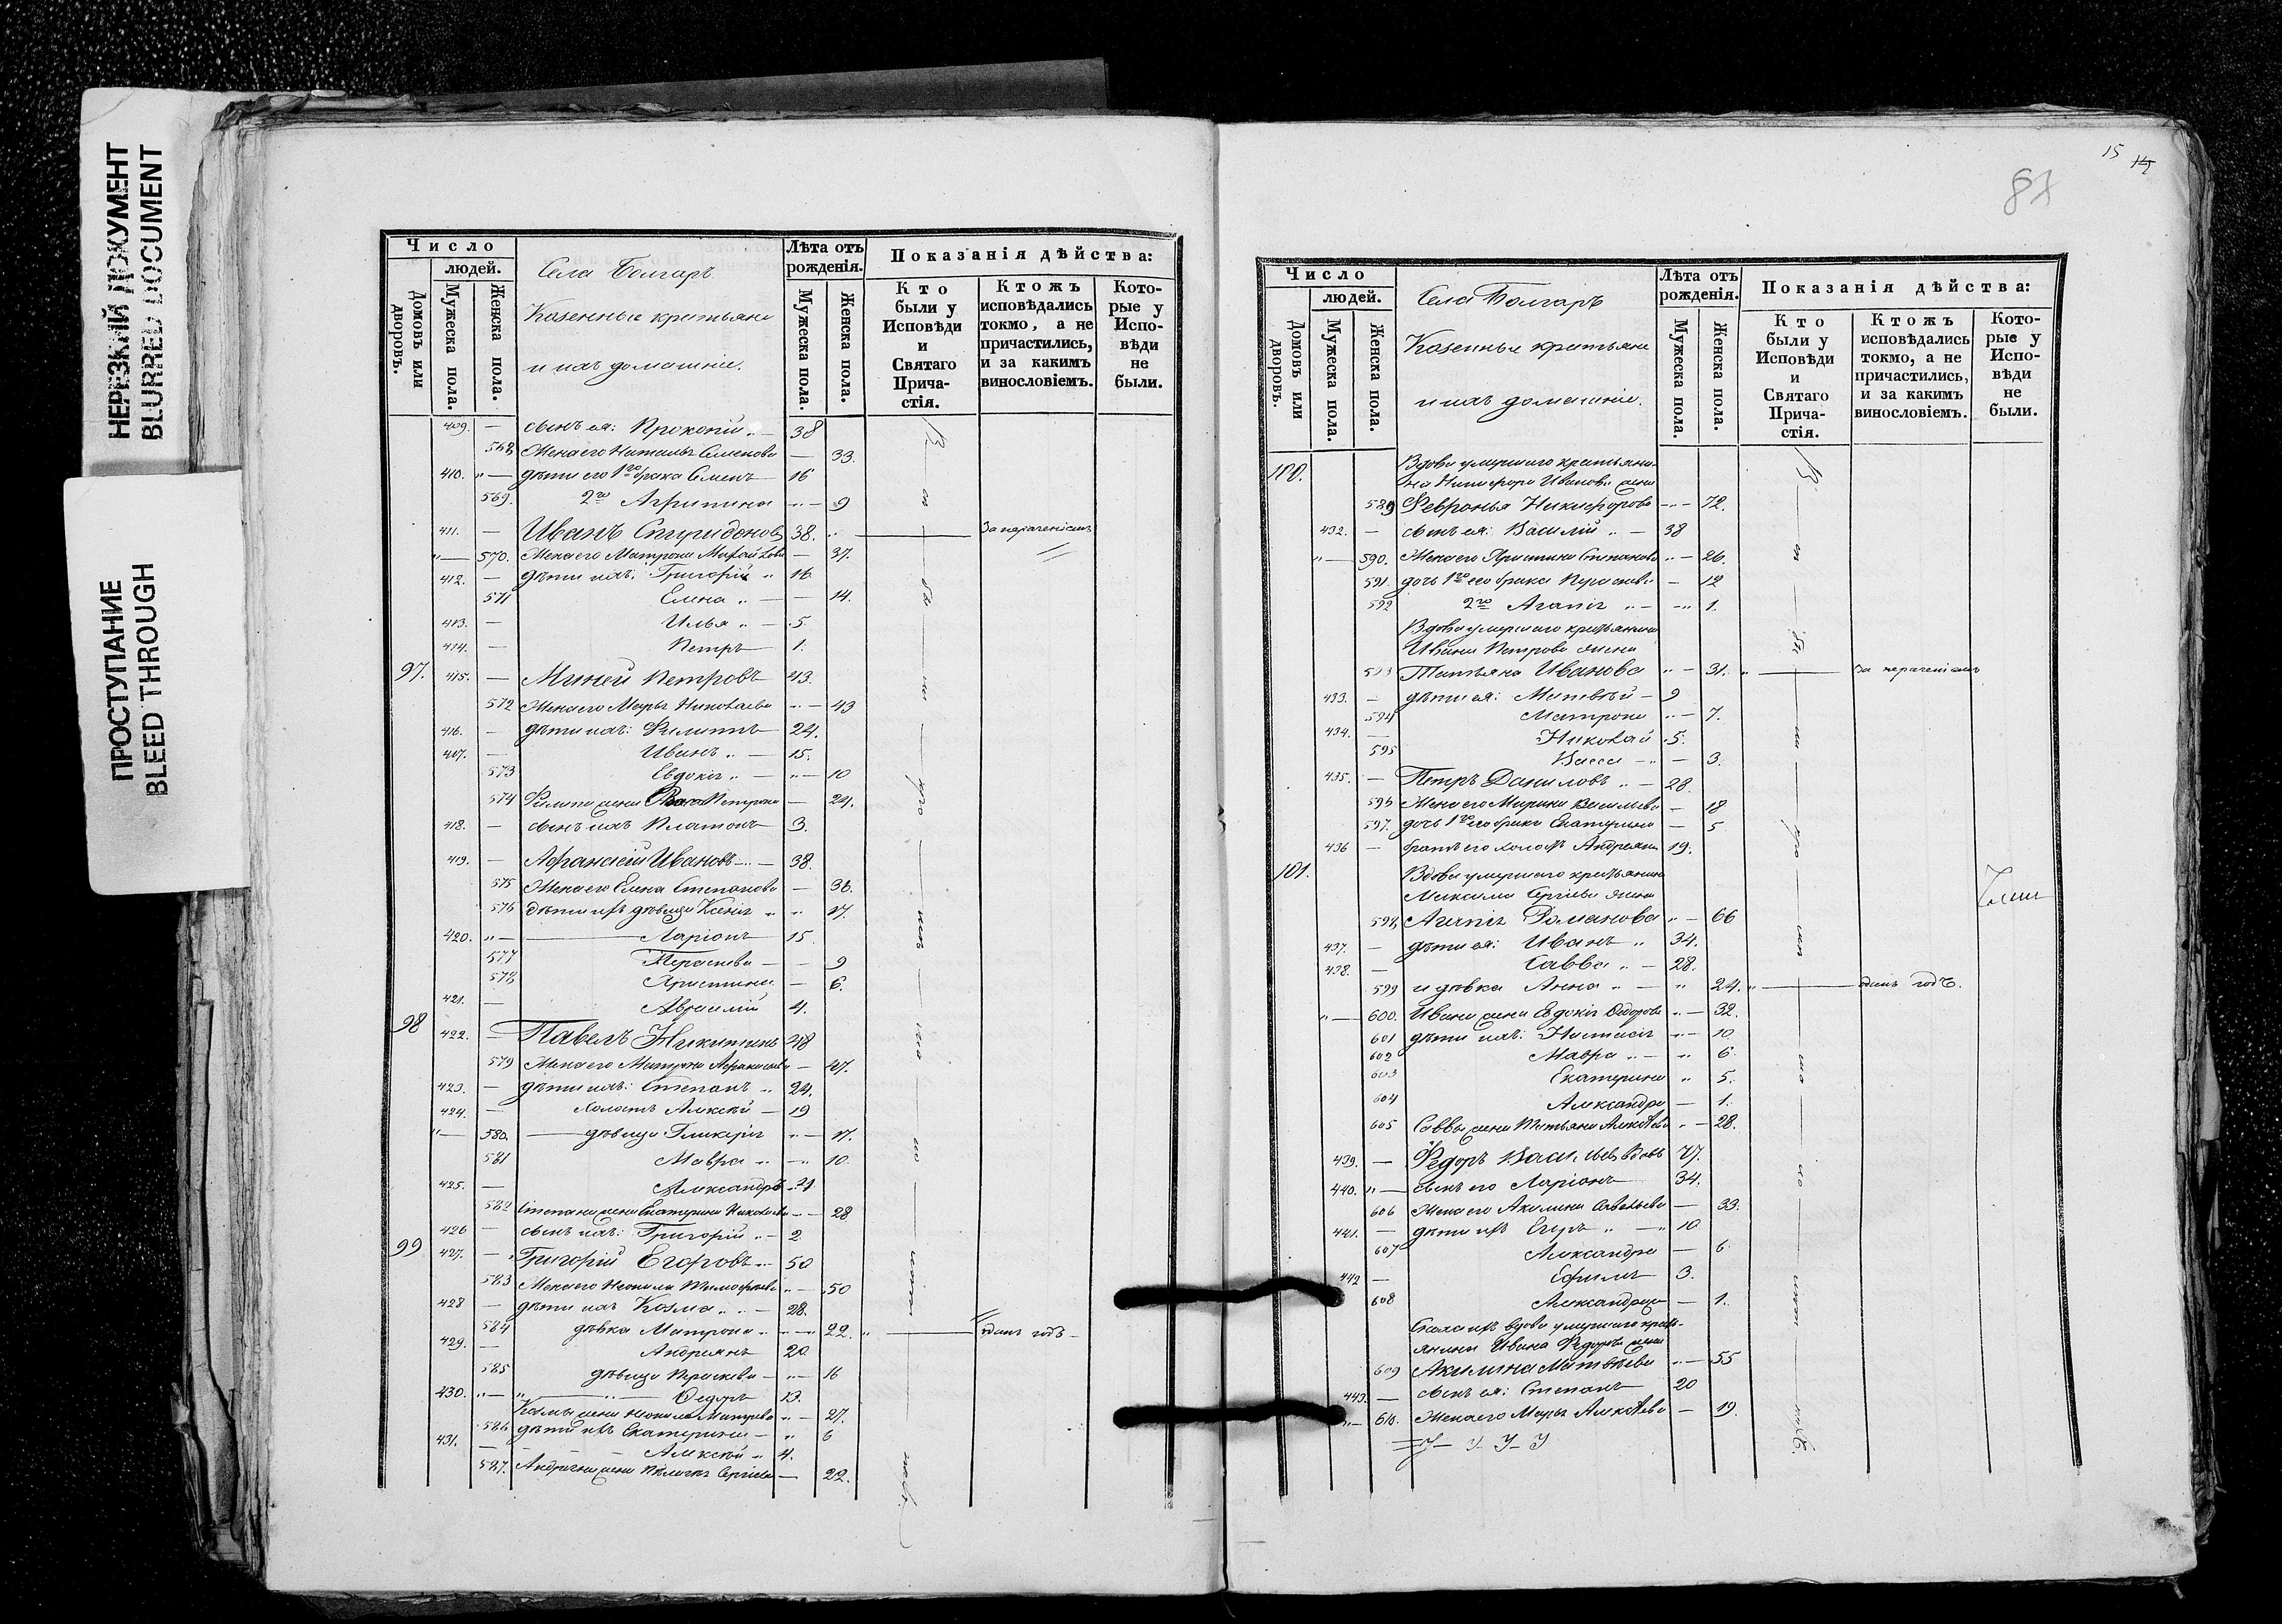 НЕРЕЗКИЙ ДОКУМЕНТ
BLURRED DOCUMENT
ПРОСТУПАНИЕ
BLEED THROUGH
Число
людей.
Домовъ или дворовъ.
Мужеска пола.
Женска пола.
Села Болгаръ
Казенные крестьяне
и ихъ домашніе.
Лѣта отъ рожденія.
Мужеска пола.
Женска пола.
Показанія дѣйства:
Кто были у Исповѣди и Святаго Причастія.
Ктожъ исповѣдались токмо, а не причастились, и за какимъ винословіемъ.
Которые у Исповѣди не были.
409. — сынъ ея: Прокопій — 38
568 Жена его Наталья Семенова — 33.
410. — дѣти его 1го брака Семенъ 16
569. 2го Агрипина — 9
411. — Иванъ Спиридоновъ 38. За нераченіемъ
570. Жена его Матрона Михайлова — 37.
412. — дѣти ихъ: Григорій 16
571 Елена — 14.
413. — Илья — 5
414. — Петръ 1.
97. 415. — Миней Петровъ 43.
572 Жена его Марья Николаева — 43
416. — дѣти ихъ: Филиппъ 24.
417. — Иванъ — 15.
573 Евдокія — 10
574 Филиппа жена Петрова — 24.
418. — сынъ ихъ Платонъ 3.
419. — Афанасій Ивановъ — 38.
575 Жена его Елена Степанова — 38.
576 дѣти ихъ дѣвица Ксенія 17.
420. — Ларіонъ 15
577 Параскева — 9
578 Христина — 6.
421. — Авраамій 4.
98 422. — Павелъ Никитинъ 48
579 Жена его Матрона Афанасьева — 47.
423. — дѣти ихъ: Степанъ 24.
424. — холостъ Алексѣй — 19
580. — дѣвица Гликерія — 17.
581 Мавра — 10.
425. — Александръ 4
582 Степана жена Екатерина Николаева — 28
426 — сынъ ихъ: Григорій — 2
99 427. — Григорій Егоровъ — 50
583 Жена его Неонила Тимофѣева — 50
428 — дѣти ихъ Козма — 28.
584 дѣвка Матрона — 22. одинъ годъ
429. — Андреянъ 20
585 дѣвица Параскева — 16
430. — Ѳедоръ 13.
Козмы жена Неонила — 27.
586 дѣти ихъ Екатерина — 6
431. — Алексѣй 4.
587. Андреяна жена Пелагея Сергѣева — 22.
15
87
Число
людей.
Домовъ или дворовъ.
Мужеска пола.
Женска пола.
Села Болгаръ
Казенные крестьяне
и ихъ домашніе.
Лѣта отъ рожденія.
Мужеска пола.
Женска пола.
Показанія дѣйства:
Кто были у Исповѣди и Святаго Причастія.
Ктожъ исповѣдались токмо, а не причастились, и за какимъ винословіемъ.
Которые у Исповѣди не были.
100. Вдова умершаго крестьяни-
на Никифора Иванова жена
589 Февронья Никифорова — 72.
432. — сынъ ея: Василій — 38
590. Жена его Христина Степанова — 26.
591. дочь 1го его брака Параскева — 12
592 2го Агапія — 1.
Вдова умершаго крестьянина
Ивана Петрова жена
593 Татьяна Иванова — 31. за нераченіемъ
433. — дѣти ея: Матвѣй — 9
594 Матрона — 7.
434. — Николай 5.
595 Васса — 3.
435. — Петръ Даниловъ — 28.
596 Жена его Марина Васильева — 18
597. дочь 1го его брака Екатерина — 5
436 — братъ его холостъ Андреянъ 19.
101. Вдова умершаго крестьянина
Максима Сергѣева жена
598 Агапія Романова — 66
437. — дѣти ея: Иванъ 34.
438. — Савва — 28.
599 и дѣвка Анна — 24. одинъ годъ.
600. Ивана жена Евдокія Ѳедорова — 32.
601 дѣти ихъ: Настасія — 10
602 Мавра — 6.
603 Екатерина 5.
604 Александра — 1.
605 Саввы жена Татьяна Алексѣева — 28.
439. — Ѳедоръ Васильевъ вдовъ 77.
440. — сынъ его Ларіонъ 34.
606 Жена его Акилина Савельева — 33.
441. — дѣти ихъ Егоръ — 10
607 Александра — 6.
442 — Ефимъ 3.
608 Александра — 1.
Сноха ихъ вдова умершаго крест-
янина Ивана Ѳедорова жена
609 Акилина Матвѣева — 55
443. — сынъ ея: Степанъ 20
610. Жена его Марья Алексѣева — 19.